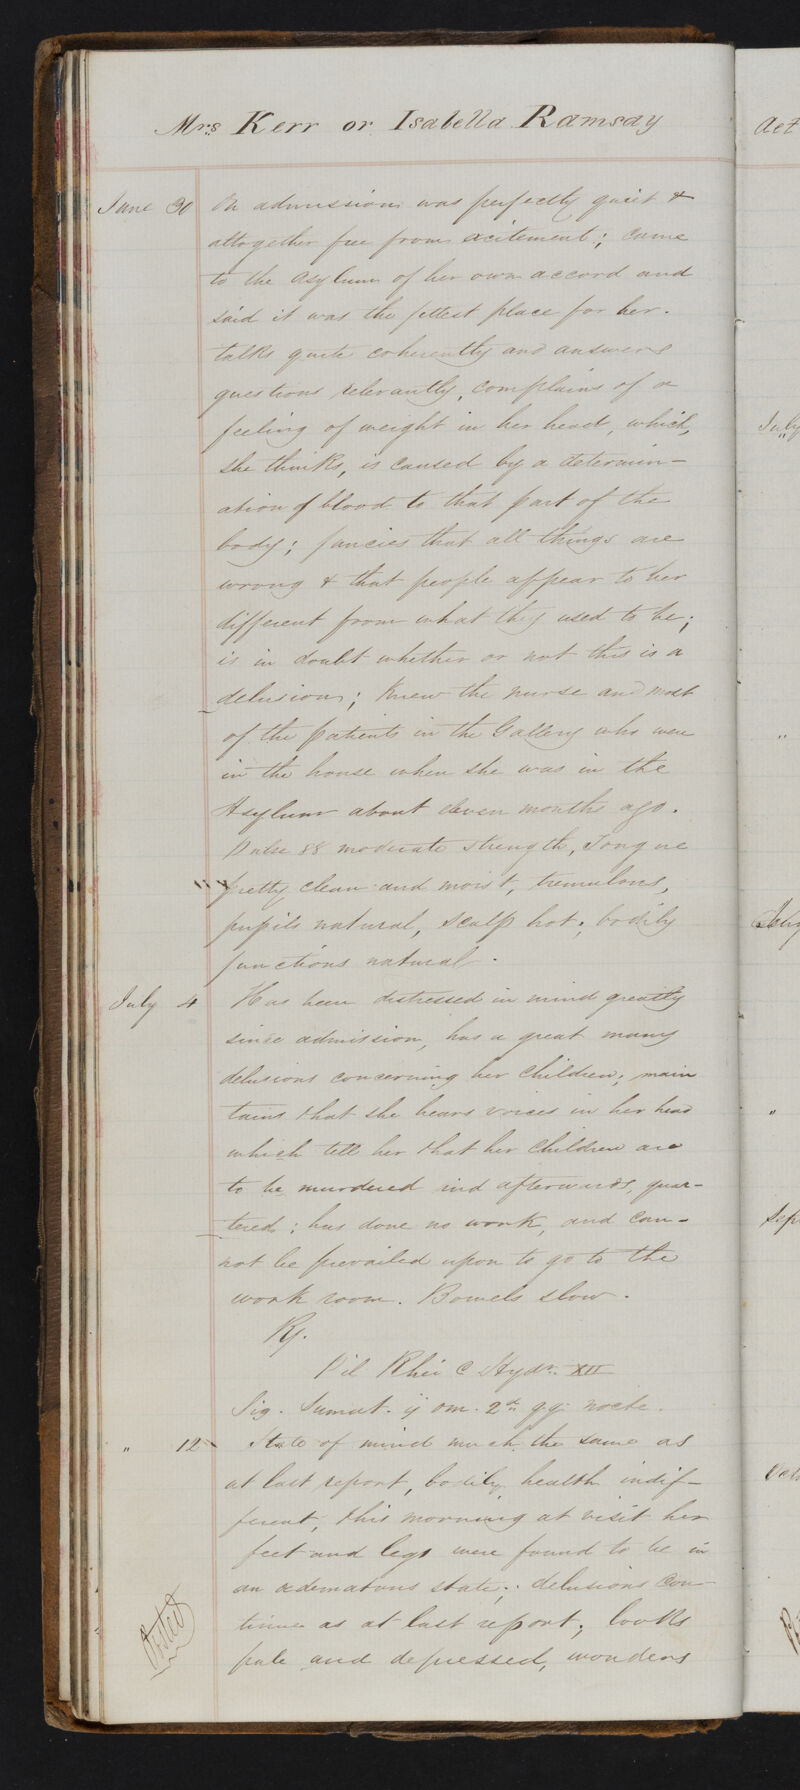 Mrs Kerr or Isabella Ramsay
Aet
June 30 On admission was perfectly quiet &
altogether free from excitement; came
to the Asylum of her own accord and
said it was the fittest place for her.
talks quite coherently and answers
questions relevantly, complains of a
feeling of weight in her head, which,
she thinks, is caused by a determin-
ation of blood to that part of the
body; fancies that all things are
wrong & that people appear to her
different from what they used to be;
is in doubt whether or not this is a
delusion; knew the nurse and most
of the patients in the Gallery who were
in the house when she was in the
Asylum about eleven months ago.
Pulse 88 moderate strength, Tongue
pretty clean and moist, tremulous,
pupils natural, scalp hot; bodily
functions natural.
July 4 Has been distressed in mind greatly
since admission, has a great many
delusions concerning her children; main
tains that she hears voices in her head
which tell her that her children are
to be murdered and afterwards, quar-
tered; has done no work, and can-
not be prevailed upon to go to the
work room. Bowels slow.
Rx.
Pil Rhei c Hydr. XII
Sig. Sumat. ij om. 2da qq. nocte.
" 12 State of mind much the same as
at last report, bodily health indif-
ferent, this morning at visit her
feet and legs were found to be in
an œdematous state; delusions con-
tinue as at last report; looks
pale and depressed, wonders
Posted
July
"
"
Sep
Octo